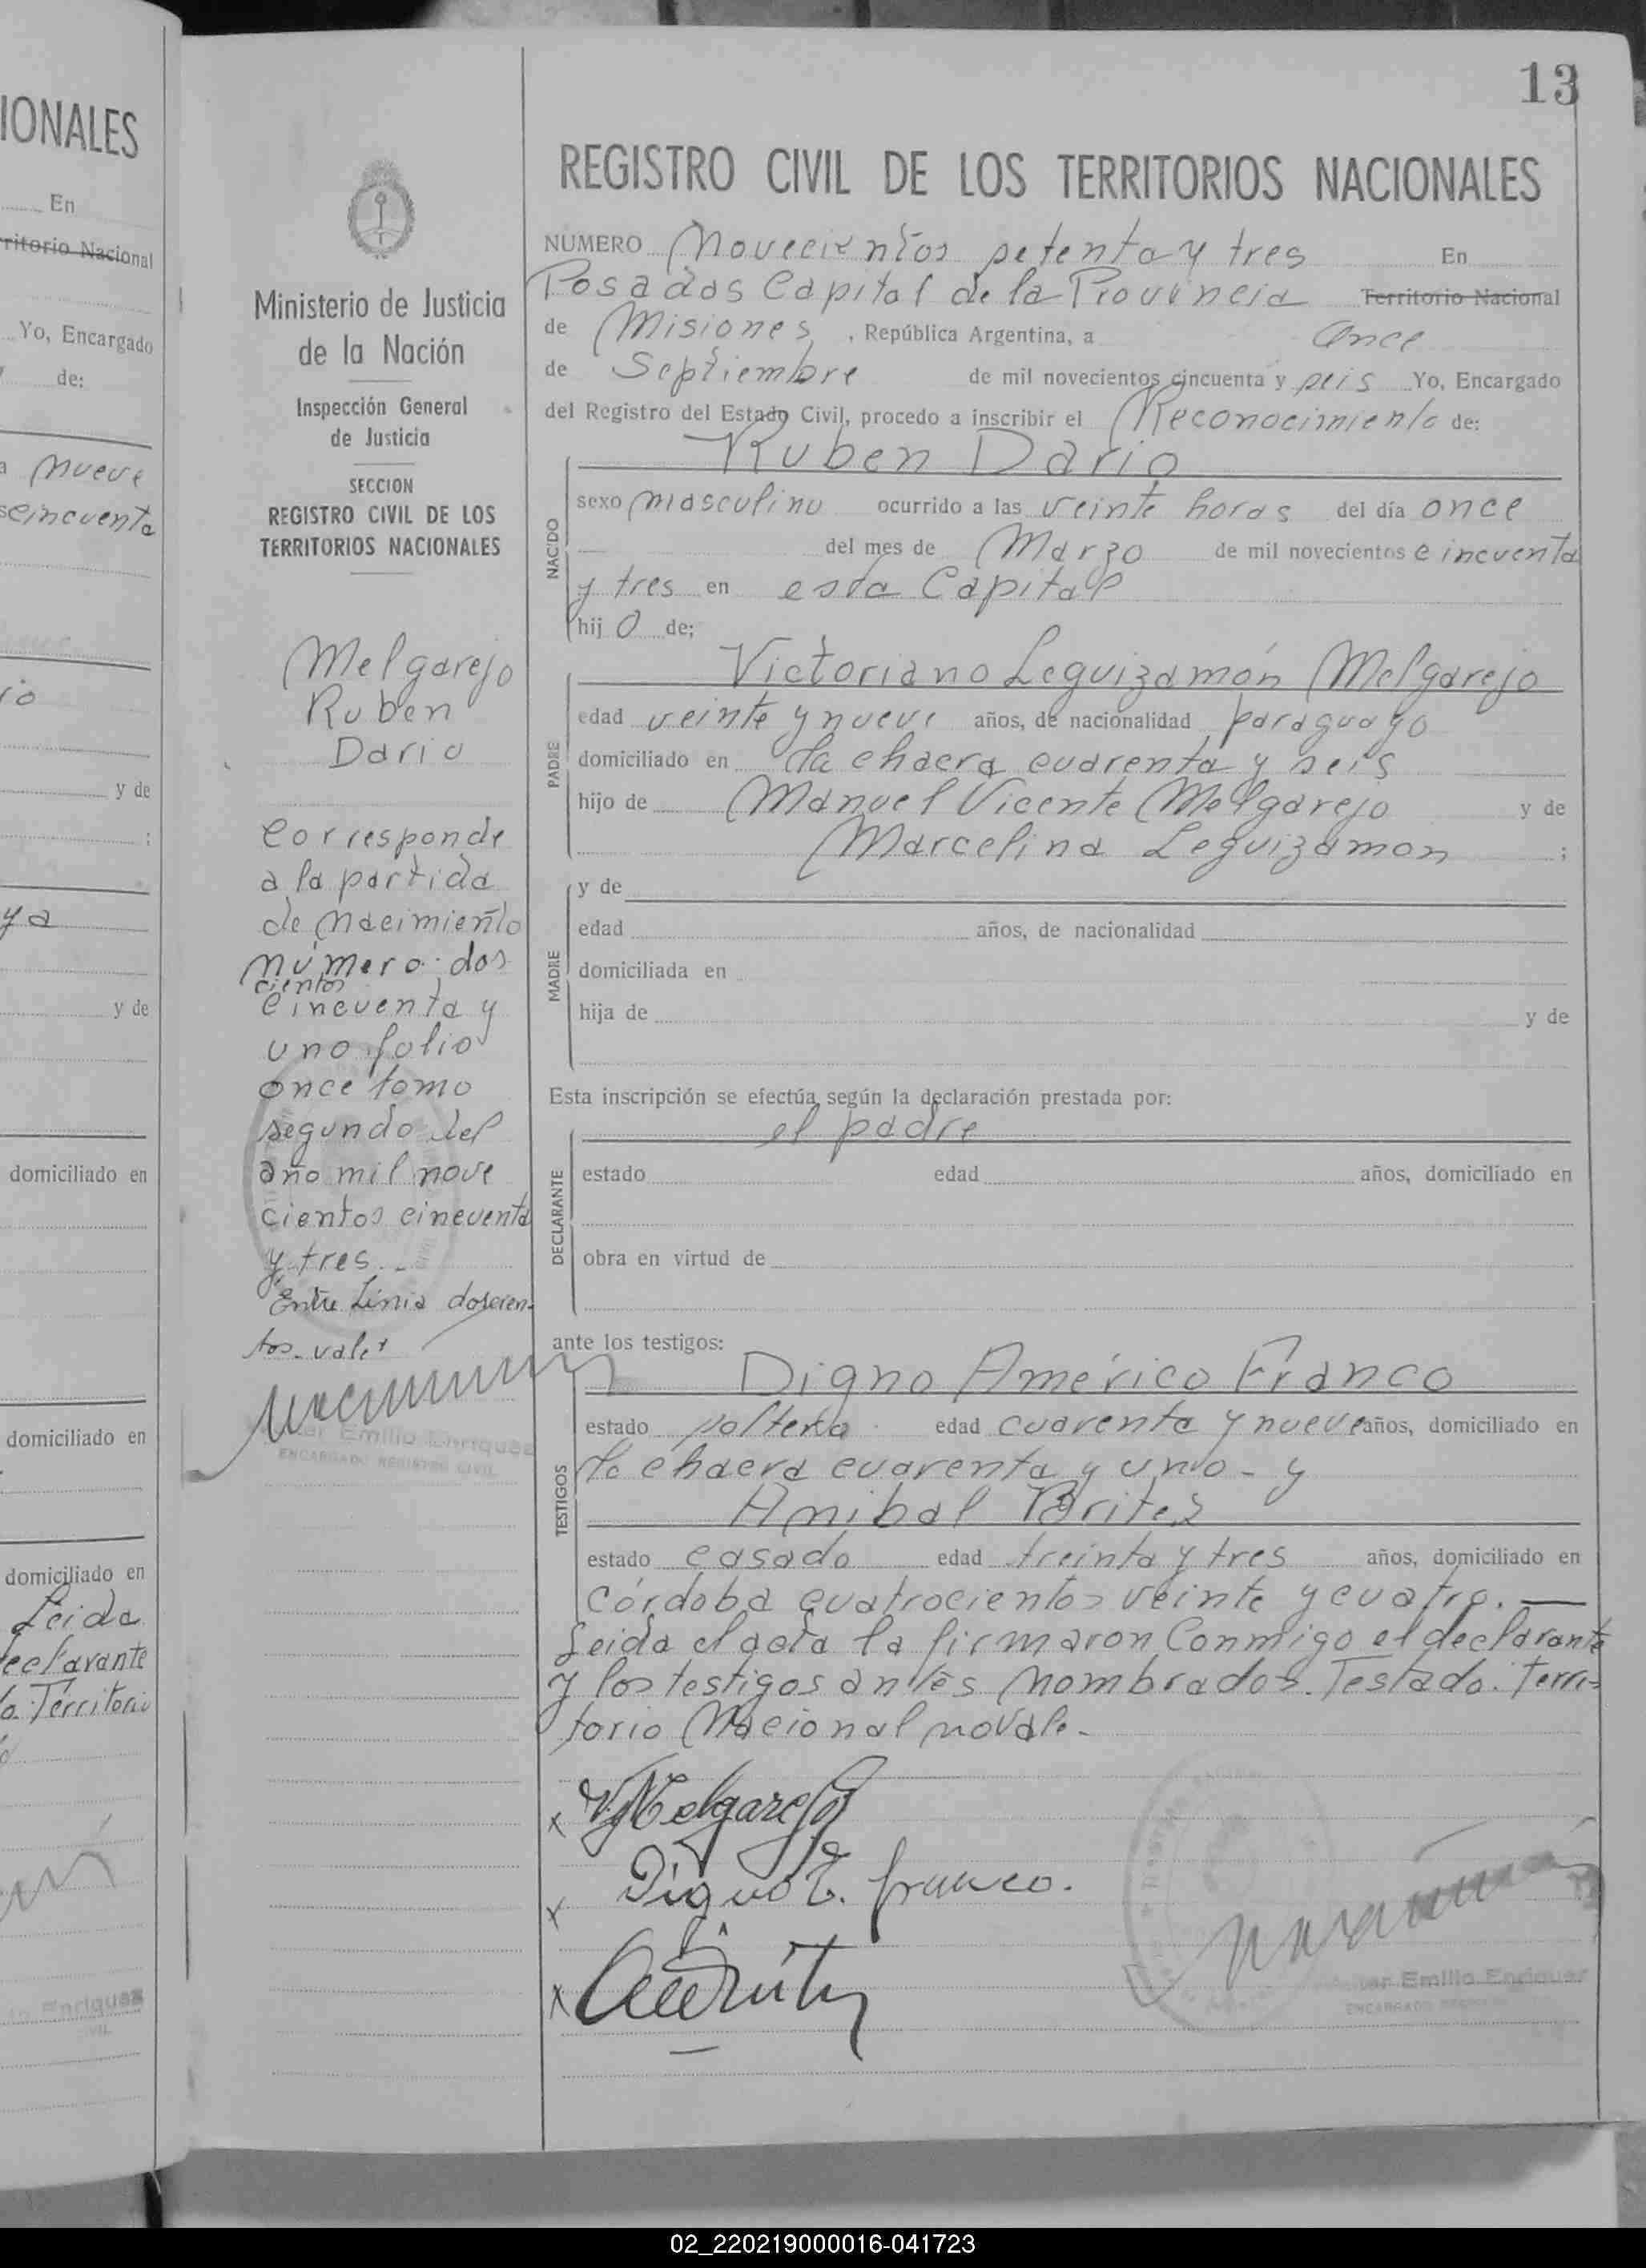 IONALES
En
ritorio Nacional
Yo, Encargado
de:
a nueve
scincuenta
rio
y de
;
ya
y de
domiciliado en
domiciliado en
domiciliado en
Leida
eclarante
o. Territorio
io Enriquez
13
Ministerio de Justicia
de la Nación
Inspección General
de Justicia
SECCION
REGISTRO CIVIL DE LOS
TERRITORIOS NACIONALES
Melgarejo
Ruben
Dario
Corresponde
a la partida
de Nacimiento
número dos
cientos
cincuenta y
uno folio
once tomo
segundo del
año mil nove
cientos cincuenta
y tres.-
Entre Linia doscien-
tos-vale
Emilio Enriquez
ENCARGADO REGISTRO CIVIL
REGISTRO CIVIL DE LOS TERRITORIOS NACIONALES
NUMERO Novecientos setenta y tres En
Posadas Capital de la Provincia Territorio Nacional
de Misiones, República Argentina, a once
de Septiembre de mil novecientos cincuenta y seis Yo, Encargado
del Registro del Estado Civil, procedo a inscribir el Reconocimiento de:
Ruben Dario
NACIDO
sexo masculino ocurrido a las veinte horas del día once
del mes de Marzo de mil novecientos cincuenta
y tres en esta Capital
hijo de;
Victoriano Leguizamón Melgarejo
PADRE
edad veinte y nueve años, de nacionalidad paraguayo
domiciliado en la chacra cuarenta y seis
hijo de Manuel Vicente Melgarejo y de
Marcelina Leguizamon ;
MADRE
y de
edad años, de nacionalidad
domiciliada en
hija de y de
Esta inscripción se efectúa según la declaración prestada por:
el padre
DECLARANTE
estado edad años, domiciliado en
obra en virtud de
ante los testigos:
Digno Américo Franco
TESTIGOS
estado soltero edad cuarenta y nueve años, domiciliado en
la chacra cuarenta y uno - y
Anibal Britez
estado casado edad treinta y tres años, domiciliado en
Córdoba cuatrocientos veinte y cuatro.
Leida el acta la firmaron Conmigo el declarante
y los testigos antes nombrados. Testado. Terri-
torio Nacional no vale.
x V. L. Melgarejo
x Digno A. Franco.
x
Emilio Enriquez
ENCARGADO
02_220219000016-041723